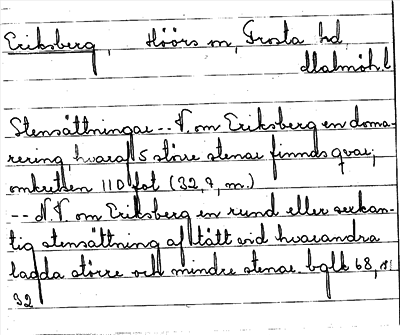 Eriksberg, Höörs sn, Frosta hd,
Malmöh. l.
Stensättningar -- V. om Eriksberg en doma-
rering, hvaraf 5 större stenar finnas qvar;
omkretsen 110 fot (32,7, m.)
-- N.V om Eriksberg en rund eller sexkan-
tig stensättning af tätt vid hvarandra
lagda större och mindre stenar. bglb 68,
32